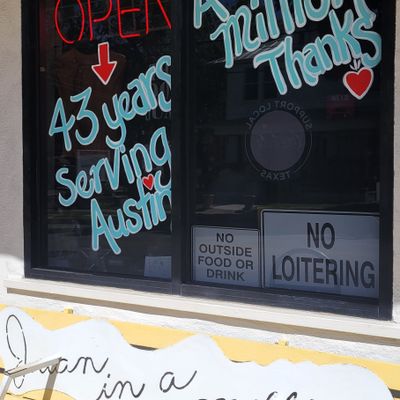 OPEN
43 years
serving
Austin
A
million
Thanks
SUPPORT LOCAL
TEXAS
NO
OUTSIDE
FOOD OR
DRINK
NO
LOITERING
Juan
in a